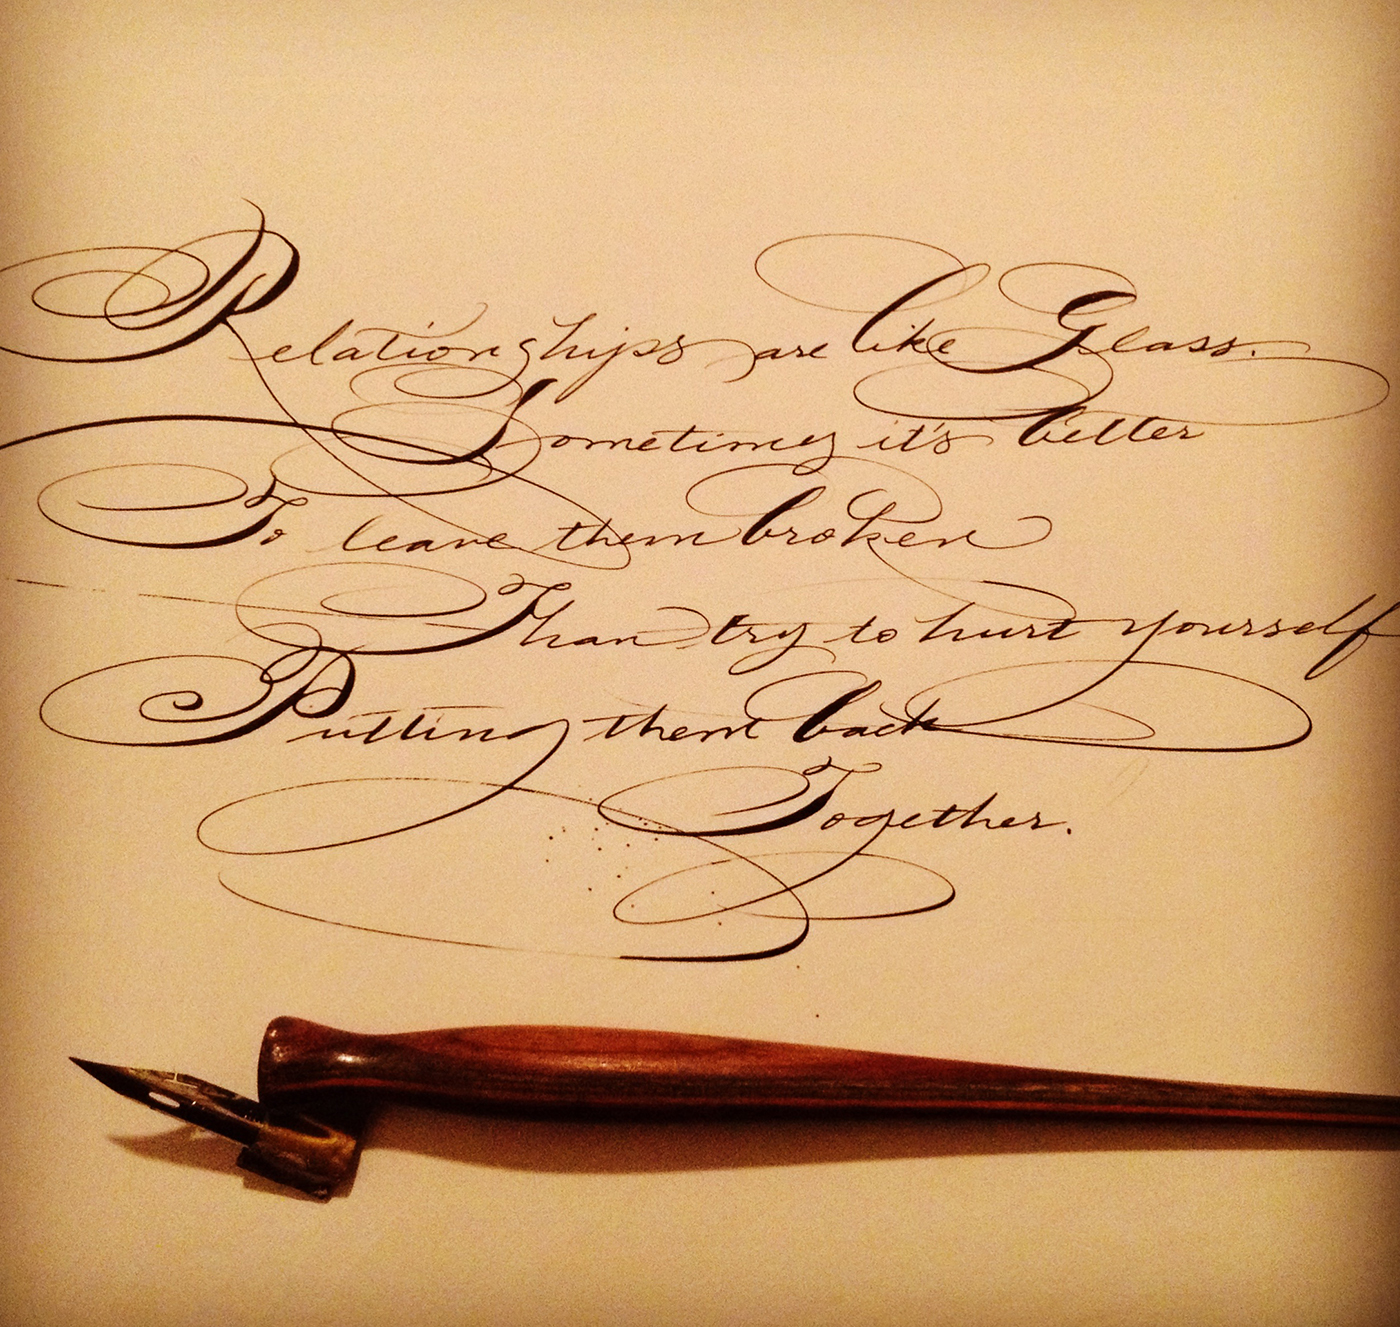 Relationships are like Glass.
Sometimes it's better
To leave them broken
Than try to hurt yourself
Putting them back
Together.